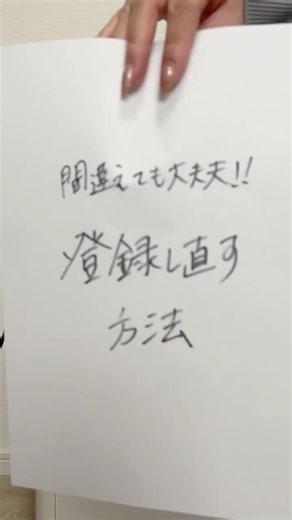 間違えても大丈夫!!
登録し直す
方法